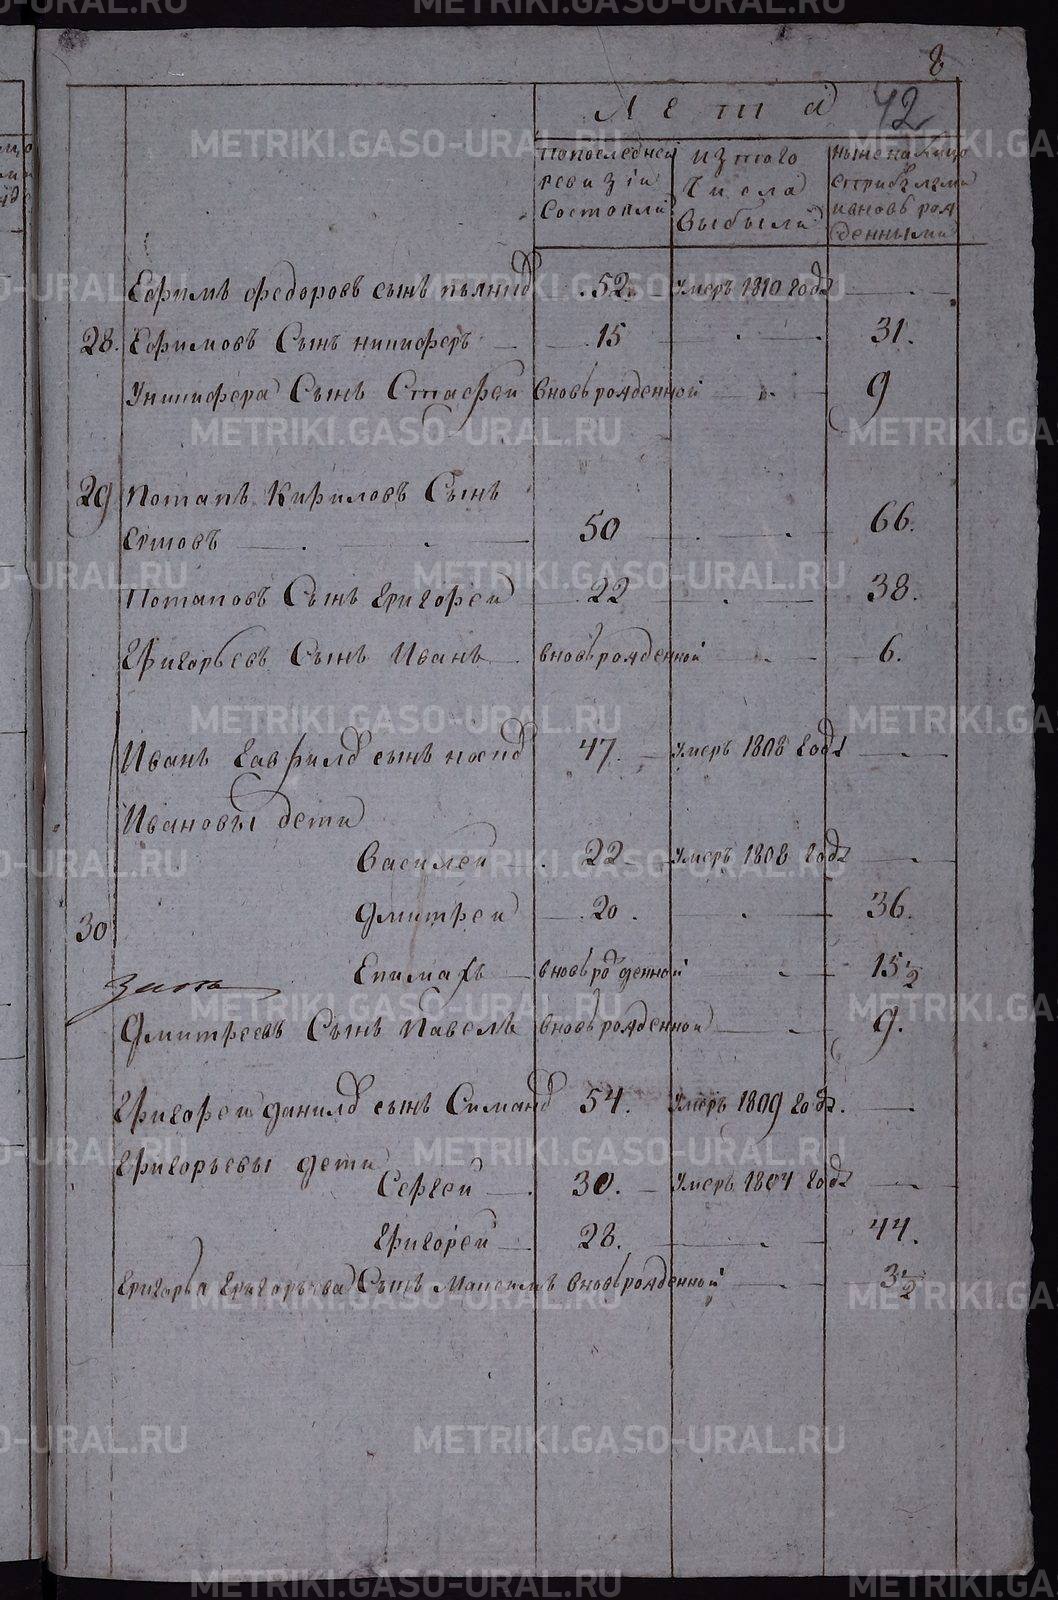 8
42
Лета
По последней ревизіи состояли
из того числа выбыли
ныне на лицо с прибылыми и вновь рожденными
Ефимъ Федоровъ сынъ 52. умеръ 1810 года
28. Ефимовъ Сынъ Никифоръ 15 31.
У Никифора Сынъ Стафей вновь рожденной 9
29 Потапъ Кириловъ Сынъ
50 66.
Потаповъ Сынъ Григорей 22 38.
Григорьевъ Сынъ Иванъ вновь рожденной 6.
Иванъ Гаврилов сынъ 47. умеръ 1808 года
Ивановы дети
Василей 22 умеръ 1808 года
Дмитрей 20. 36.
30
Епимахъ вновь рожденной 15½
Дмитреевъ Сынъ Павелъ вновь рожденной 9.
Григорей Данилов сынъ 54. умеръ 1809 года.
Григорьевы дети
Сергей 30. умеръ 1804 года
Григорей 28. 44.
Григорья Григорьева Сынъ Максимъ вновь рожденной 3½
METRIKI.GASO-URAL.RU